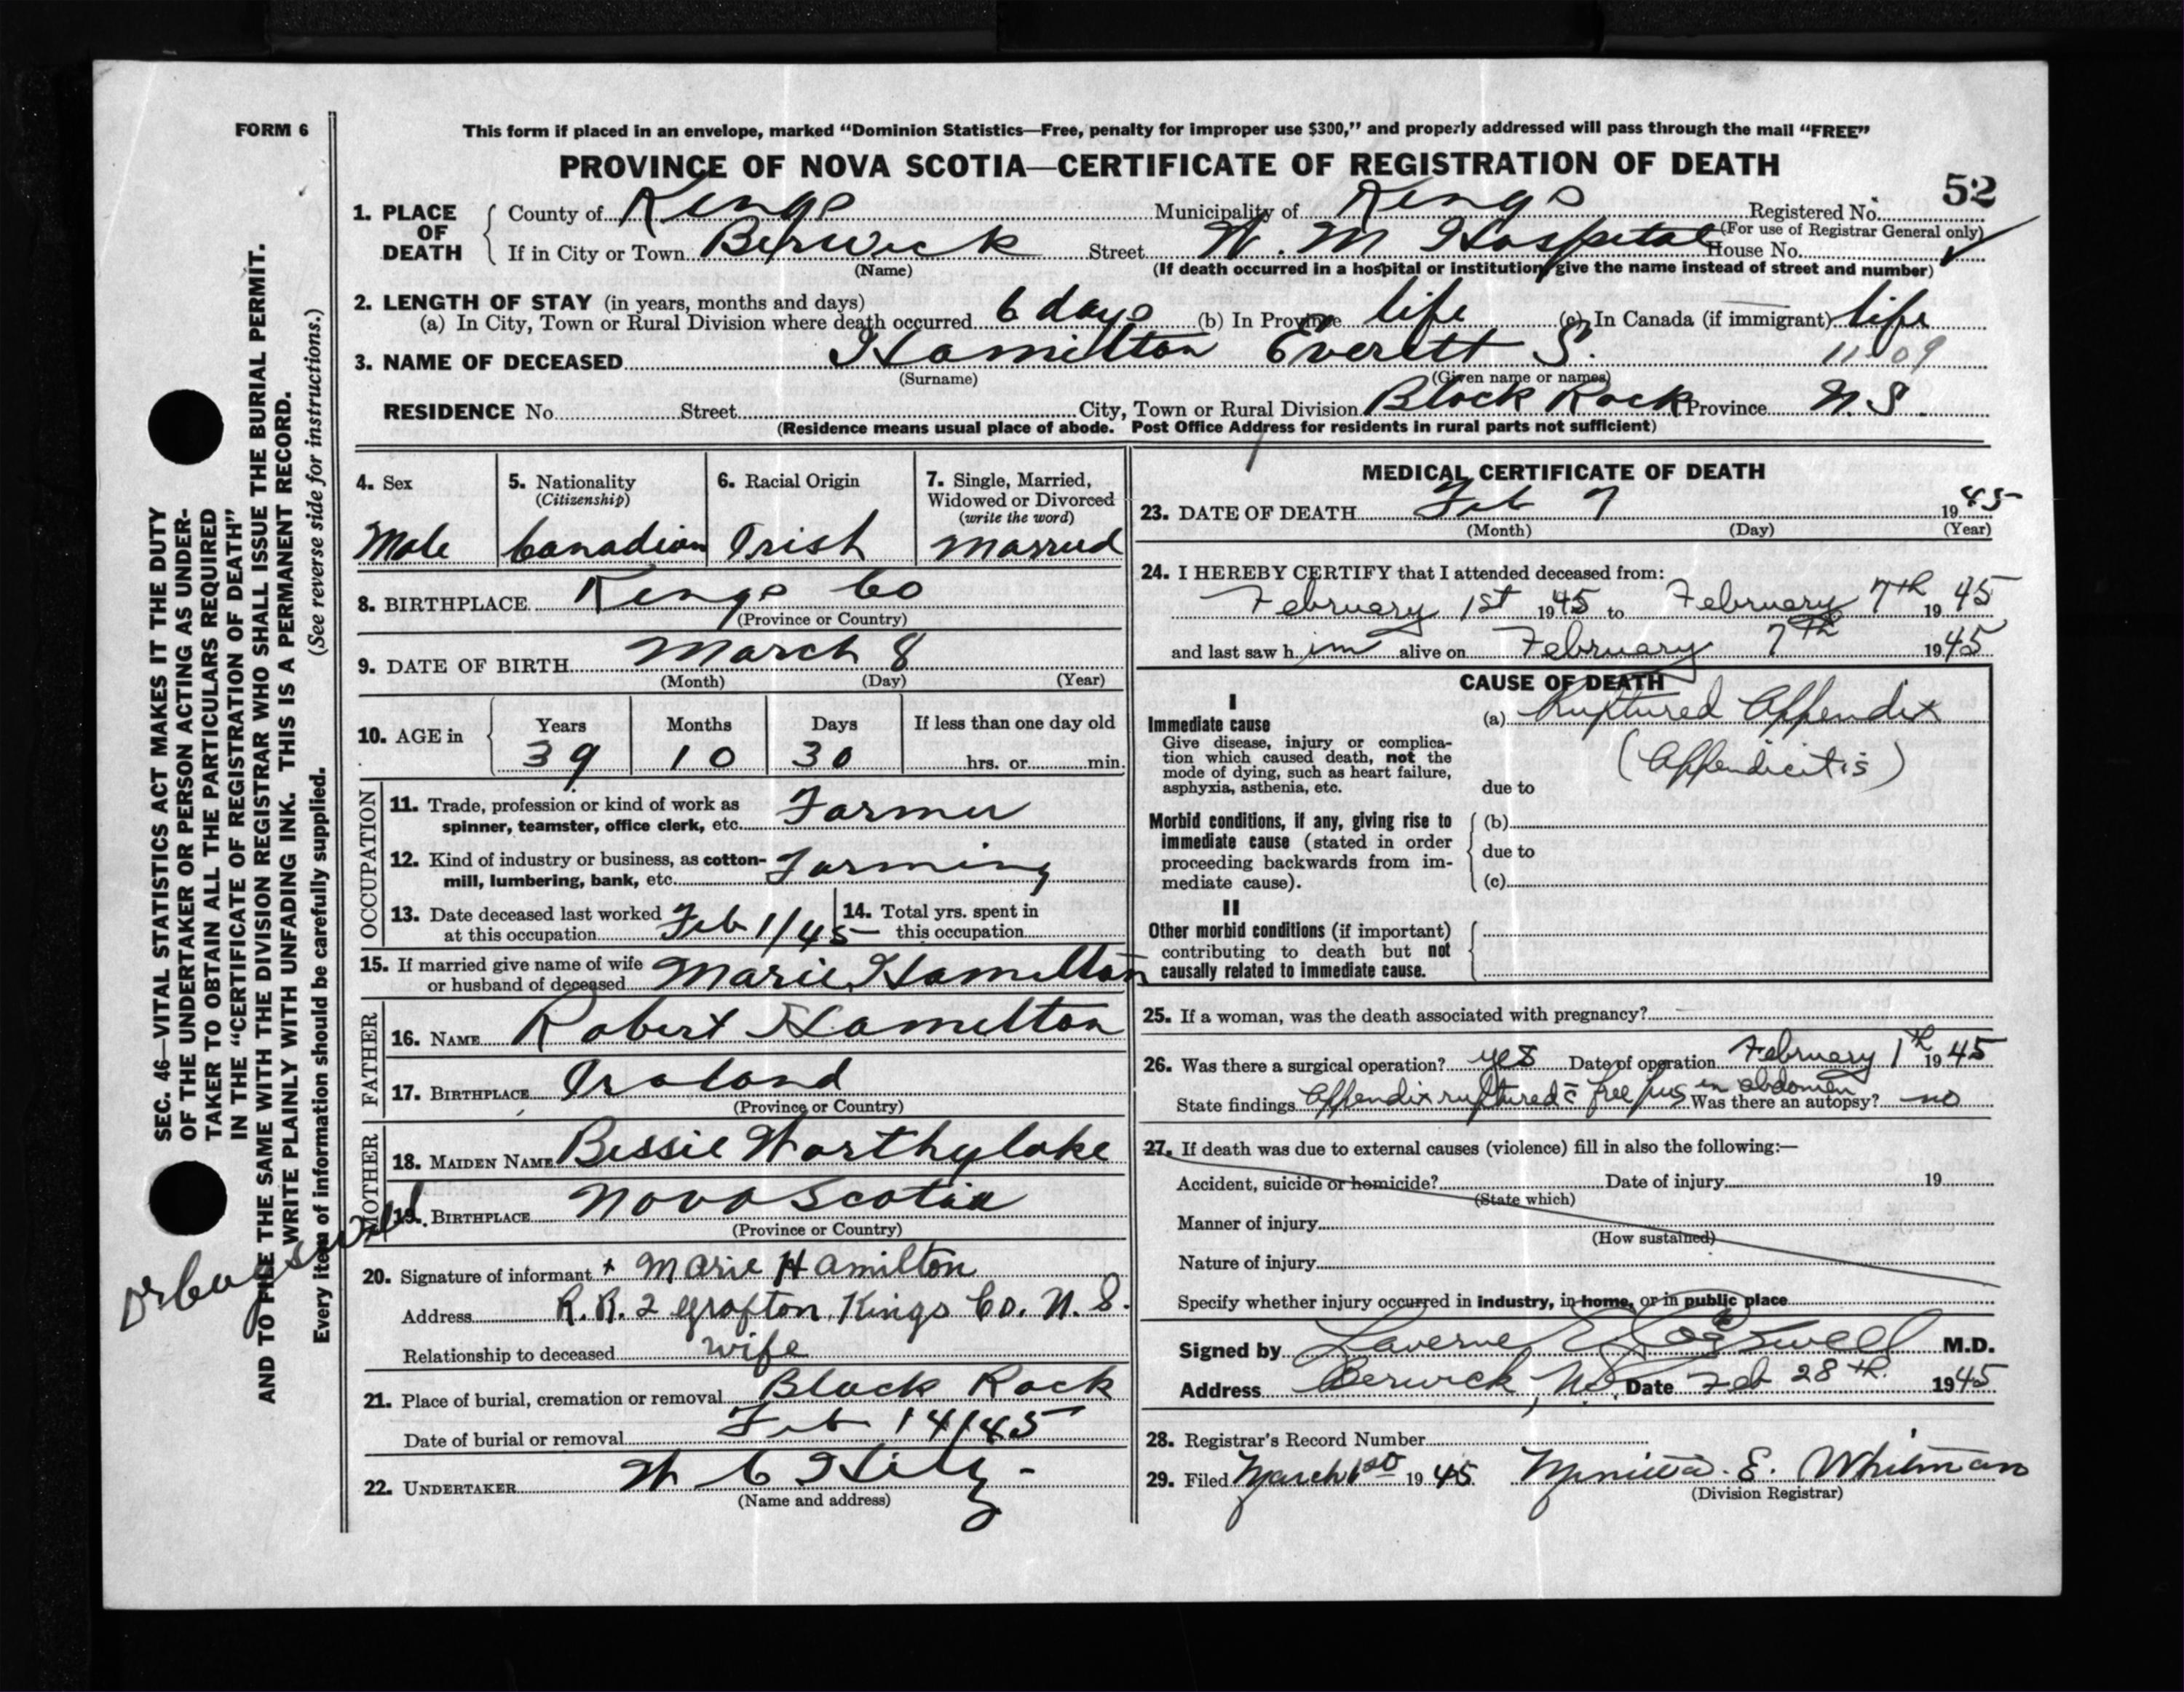 FORM 6
This form if placed in an envelope, marked “Dominion Statistics—Free, penalty for improper use $300,” and properly addressed will pass through the mail “FREE”
PROVINCE OF NOVA SCOTIA—CERTIFICATE OF REGISTRATION OF DEATH
52
1. PLACE OF DEATH County of Kings Municipality of Kings Registered No.
(For use of Registrar General only)
If in City or Town Berwick Street W. M Hospital House No.
(Name) (If death occurred in a hospital or institution, give the name instead of street and number)
2. LENGTH OF STAY (in years, months and days)
(a) In City, Town or Rural Division where death occurred 6 days (b) In Province life (c) In Canada (if immigrant) life
3. NAME OF DECEASED Hamilton Everett S. 11-09
(Surname) (Given name or names)
RESIDENCE No. Street City, Town or Rural Division Black Rock Province N.S.
(Residence means usual place of abode. Post Office Address for residents in rural parts not sufficient)
4. Sex Male
5. Nationality (Citizenship) Canadian
6. Racial Origin Irish
7. Single, Married, Widowed or Divorced (write the word) Married
8. BIRTHPLACE Kings Co
(Province or Country)
9. DATE OF BIRTH March 8
(Month) (Day) (Year)
10. AGE in Years Months Days If less than one day old
39 10 30 hrs. or min.
OCCUPATION
11. Trade, profession or kind of work as
spinner, teamster, office clerk, etc. Farmer
12. Kind of industry or business, as cotton-
mill, lumbering, bank, etc. Farming
13. Date deceased last worked
at this occupation Feb 1/45
14. Total yrs. spent in
this occupation
15. If married give name of wife
or husband of deceased Marie Hamilton
FATHER
16. NAME Robert Hamilton
17. BIRTHPLACE Iraland
(Province or Country)
MOTHER
18. MAIDEN NAME Bessie Worthylake
19. BIRTHPLACE Nova Scotia
(Province or Country)
20. Signature of informant + Marie Hamilton
Address R.R. 2 Grafton, Kings Co. N. S.
Relationship to deceased wife
21. Place of burial, cremation or removal Black Rock
Date of burial or removal Feb 14/45
22. UNDERTAKER W C Hiltz
(Name and address)
MEDICAL CERTIFICATE OF DEATH
23. DATE OF DEATH Feb 7 1945
(Month) (Day) (Year)
24. I HEREBY CERTIFY that I attended deceased from:
February 1st 1945 to February 7th 1945
and last saw him alive on February 7th 1945
CAUSE OF DEATH
I
Immediate cause
Give disease, injury or complica-
tion which caused death, not the
mode of dying, such as heart failure,
asphyxia, asthenia, etc.
(a) Ruptured Appendix
(Appendicitis)
due to
Morbid conditions, if any, giving rise to
immediate cause (stated in order
proceeding backwards from im-
mediate cause).
(b)
due to
(c)
II
Other morbid conditions (if important)
contributing to death but not
causally related to immediate cause.
25. If a woman, was the death associated with pregnancy?
26. Was there a surgical operation? yes Date of operation February 1th 1945
State findings Appendix ruptured c̄ free pus in abdomen Was there an autopsy? no
27. If death was due to external causes (violence) fill in also the following:—
Accident, suicide or homicide? Date of injury 19
(State which)
Manner of injury
(How sustained)
Nature of injury
Specify whether injury occurred in industry, in home, or in public place
Signed by Laverne E Cogswell M.D.
Address Berwick, N.S. Date Feb 28th. 1945
28. Registrar's Record Number
29. Filed March 1st 1945 E. Whitman
(Division Registrar)
SEC. 46—VITAL STATISTICS ACT MAKES IT THE DUTY
OF THE UNDERTAKER OR PERSON ACTING AS UNDER-
TAKER TO OBTAIN ALL THE PARTICULARS REQUIRED
IN THE “CERTIFICATE OF REGISTRATION OF DEATH”
AND TO FILE THE SAME WITH THE DIVISION REGISTRAR WHO SHALL ISSUE THE BURIAL PERMIT.
WRITE PLAINLY WITH UNFADING INK. THIS IS A PERMANENT RECORD.
Every item of information should be carefully supplied. (See reverse side for instructions.)
Dr Cogswell